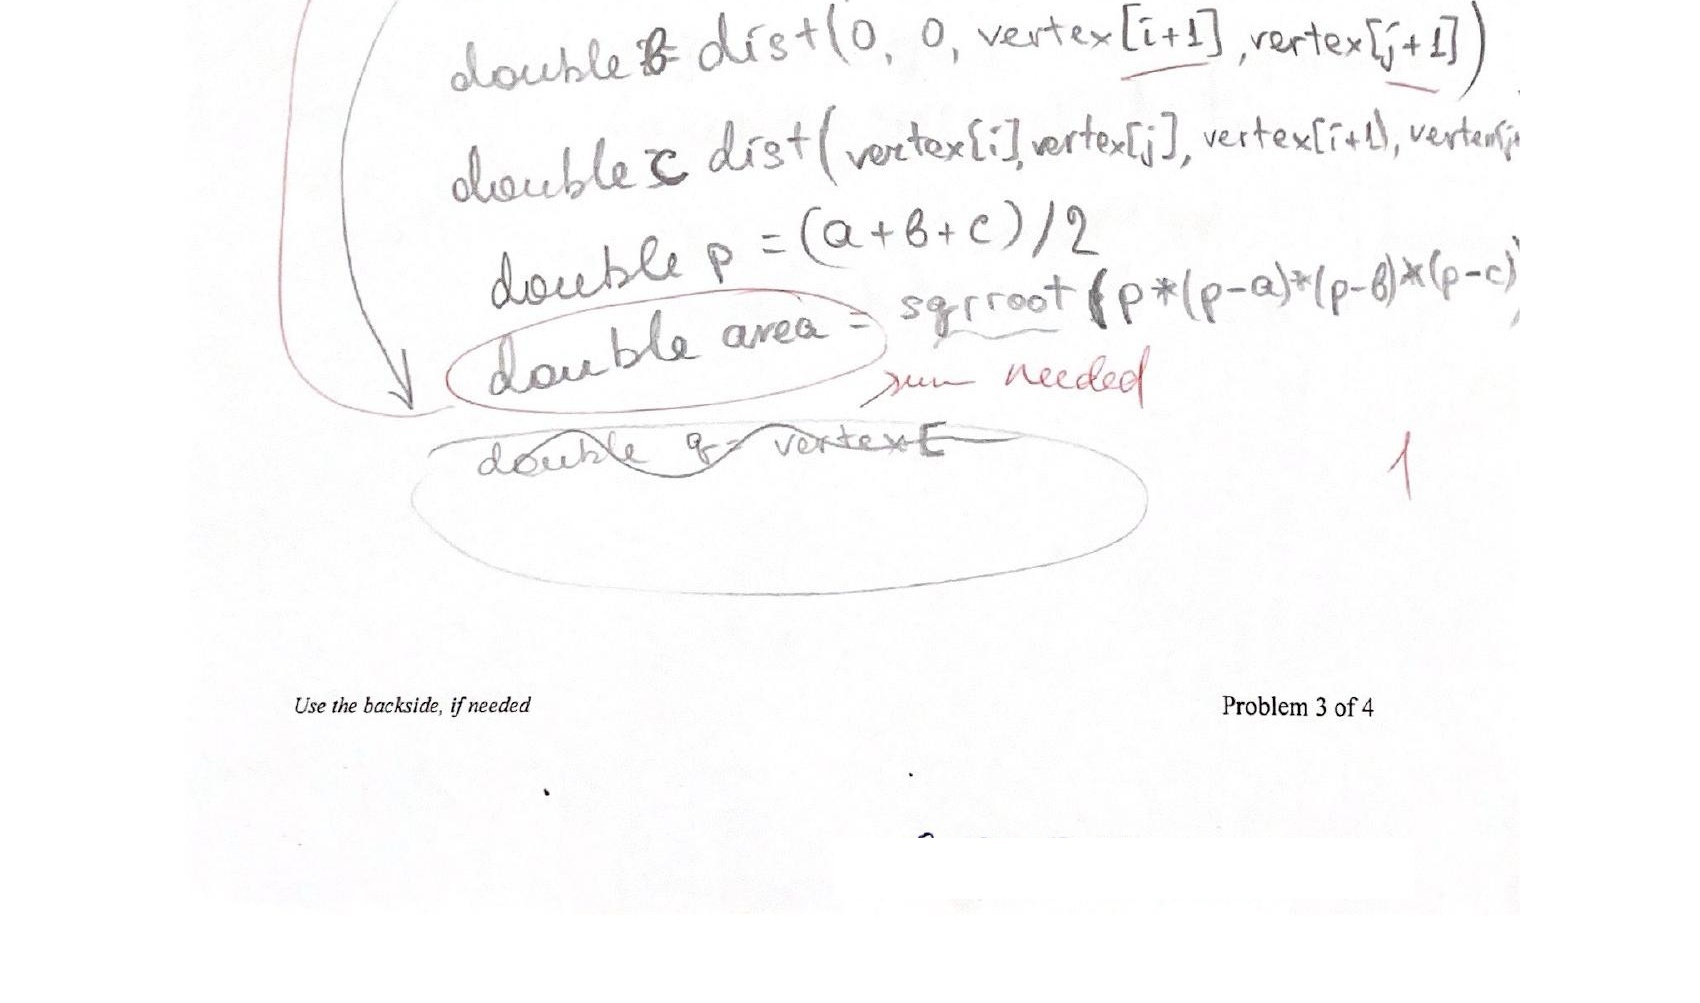 double b= dist(0, 0, vertex[i+1], vertex[j+1])
double c dist(vertex[i], vertex[j], vertex[i+1], vertex[j+
double p = (a+b+c)/2
double area = sqrroot (p*(p-a)*(p-b)*(p-c)
sum needed
double q= vertex[
1
Use the backside, if needed
Problem 3 of 4